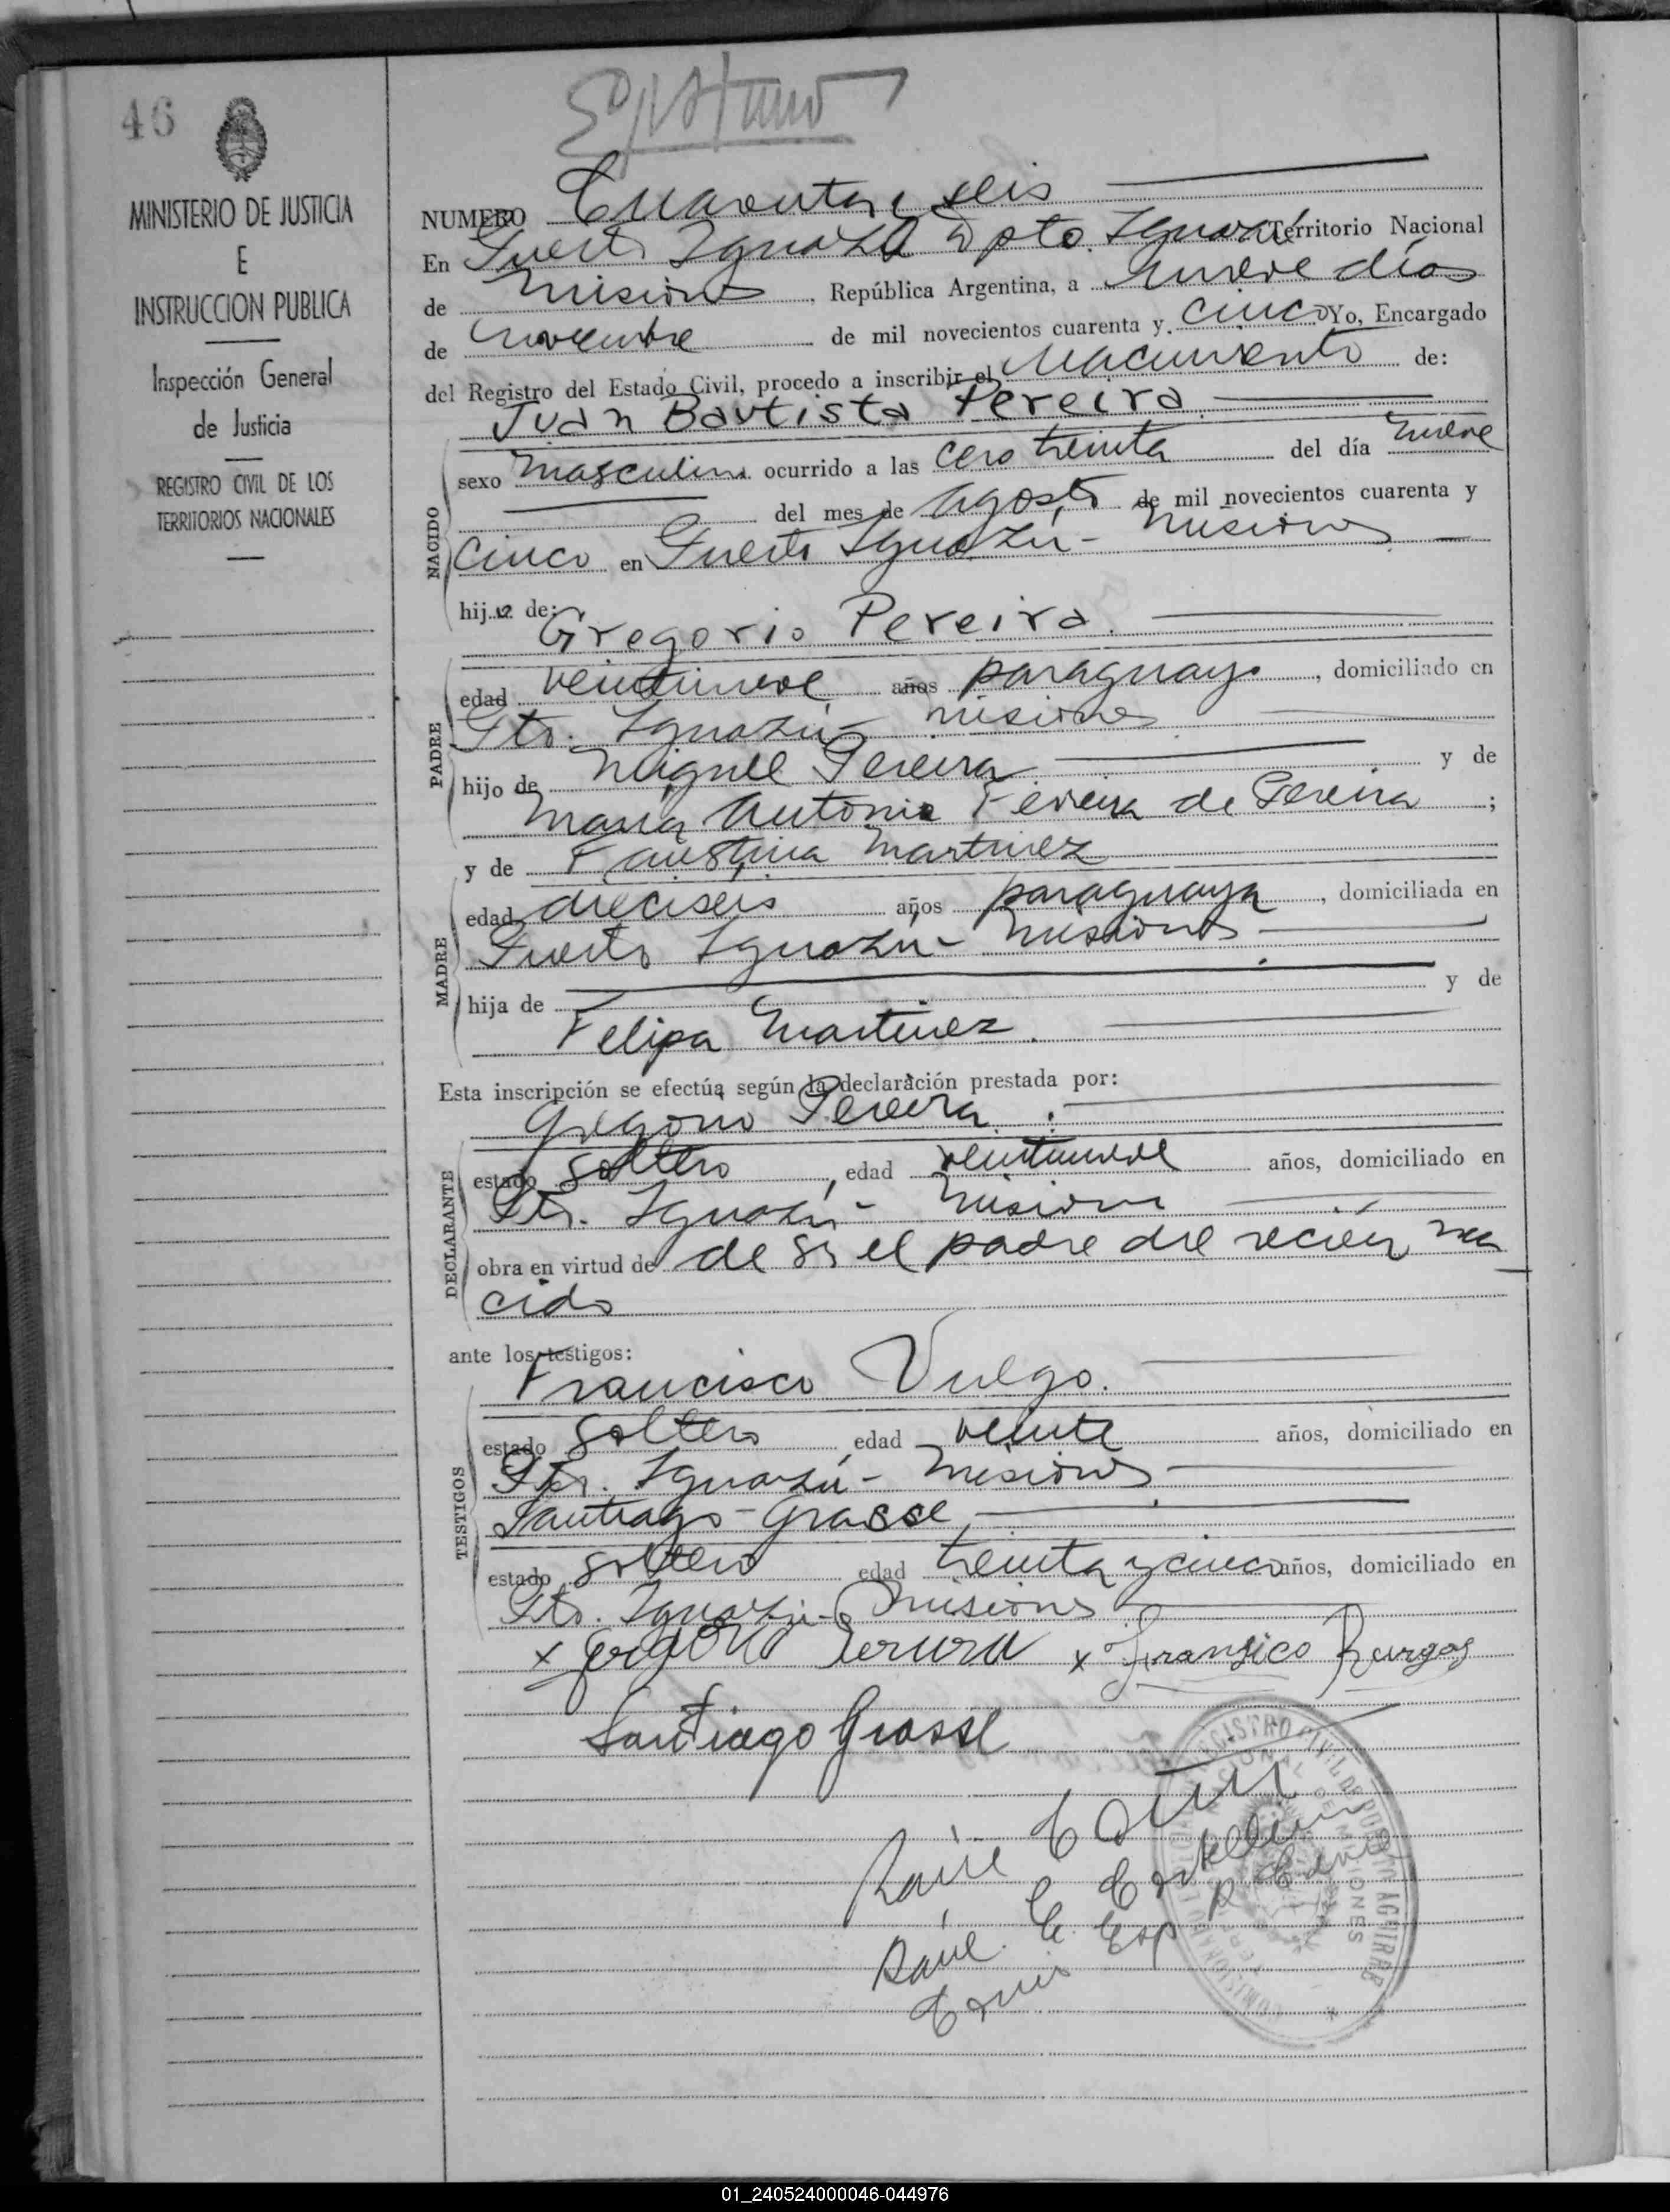 46
MINISTERIO DE JUSTICIA
E
INSTRUCCION PUBLICA
Inspección General
de Justicia
REGISTRO CIVIL DE LOS
TERRITORIOS NACIONALES
NUMERO Cuarenta y seis
En Puerto Iguazú Dpto. Iguazú Territorio Nacional
de Misiones, República Argentina, a nueve días
de noviembre de mil novecientos cuarenta y cinco Yo, Encargado
del Registro del Estado Civil, procedo a inscribir el Nacimiento de:
Juan Bautista Pereira
sexo masculino ocurrido a las cero treinta del día nueve
del mes de Agosto de mil novecientos cuarenta y
NACIDO
cinco en Puerto Iguazú - Misiones
hijo de:
Gregorio Pereira.
edad veintinueve años paraguayo, domiciliado en
Pto. Iguazú - Misiones
PADRE
hijo de Miguel Pereira y de
María Antonia Pereira de Pereira;
y de Faustina Martinez
edad dieciseis años paraguaya, domiciliada en
Puerto Iguazú - Misiones
MADRE
hija de y de
Felipa Martinez.
Esta inscripción se efectúa según la declaración prestada por:
Gregorio Pereira.
estado soltero, edad veintinueve años, domiciliado en
Pto. Iguazú - Misiones
DECLARANTE
obra en virtud de de ser el padre del recién na
cido
ante los testigos:
Francisco
estado soltero, edad veinte años, domiciliado en
Pto. Iguazú - Misiones
TESTIGOS
Santiago Grasse
estado soltero edad treinta y cinco años, domiciliado en
Pto. Iguazú - Misiones
x Gregorio Pereira x Fransico Burgos
Santiago Grasse
Raúl
Raúl C.
01_240524000046-044976